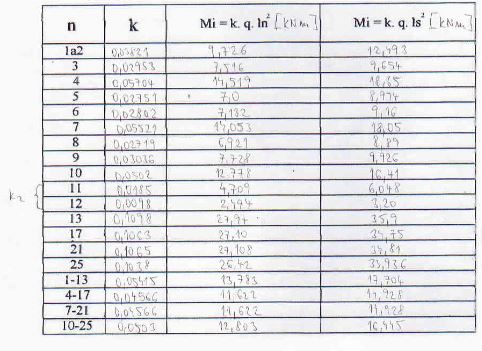 n k Mi = k. q. ln² [kNm] Mi = k. q. ls² [kNm]
1a2 0,03821 9,726 12,493
3 0,02953 7,516 9,654
4 0,05704 14,519 18,65
5 0,02751 7,0 8,994
6 0,02802 7,132 9,16
7 0,05521 14,053 18,05
8 0,02719 6,921 8,89
9 0,03036 7,728 9,926
10 0,0502 12,778 16,41
k2 11 0,0185 4,709 6,048
12 0,0098 2,494 3,20
13 0,1098 27,94 35,9
17 0,1063 27,10 34,75
21 0,1065 27,108 34,81
25 0,1038 26,42 33,936
1-13 0,05415 13,783 17,704
4-17 0,04566 11,622 14,928
7-21 0,04566 11,622 14,928
10-25 0,0503 12,803 16,445